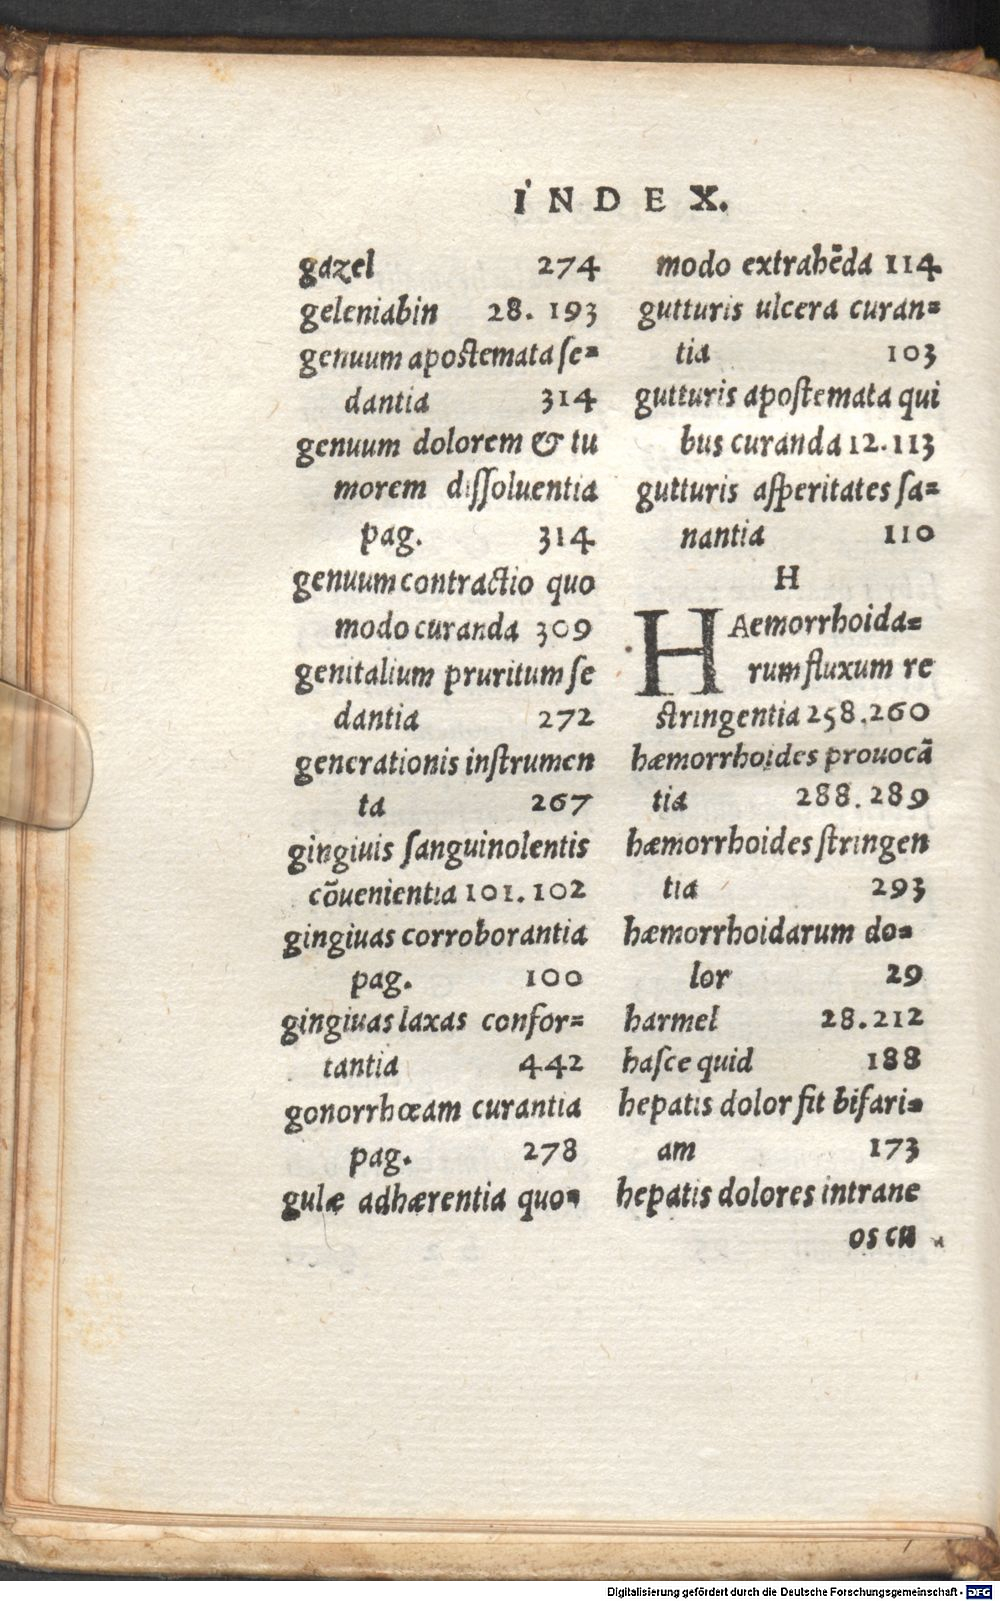 INDEX.
gazel 274
geleniabin 28. 193
genuum apostemata ſe=
dantia 314
genuum dolorem & tu
morem diſſoluentia
pag. 314
genuum contractio quo
modo curanda 309
genitalium pruritum ſe
dantia 272
generationis inſtrumen
ta 267
gingiuis ſanguinolentis
cõuenientia 101. 102
gingiuas corroborantia
pag. 100
gingiuas laxas confor=
tantia 442
gonorrhœam curantia
pag. 278
gulæ adhærentia quo=
modo extrahẽda 114
gutturis ulcera curan=
tia 103
gutturis apoſtemata qui
bus curanda 12. 113
gutturis aſperitates ſa=
nantia 110
H
HAemorrhoida=
rum fluxum re
ſtringentia 258. 260
hæmorrhoides prouocã
tia 288. 289
hæmorrhoides ſtringen
tia 293
hæmorrhoidarum do=
lor 29
harmel 28. 212
haſce quid 188
hepatis dolor fit bifari=
am 173
hepatis dolores intrane
os cu
Digitalisierung gefördert durch die Deutsche Forschungsgemeinschaft - DFG